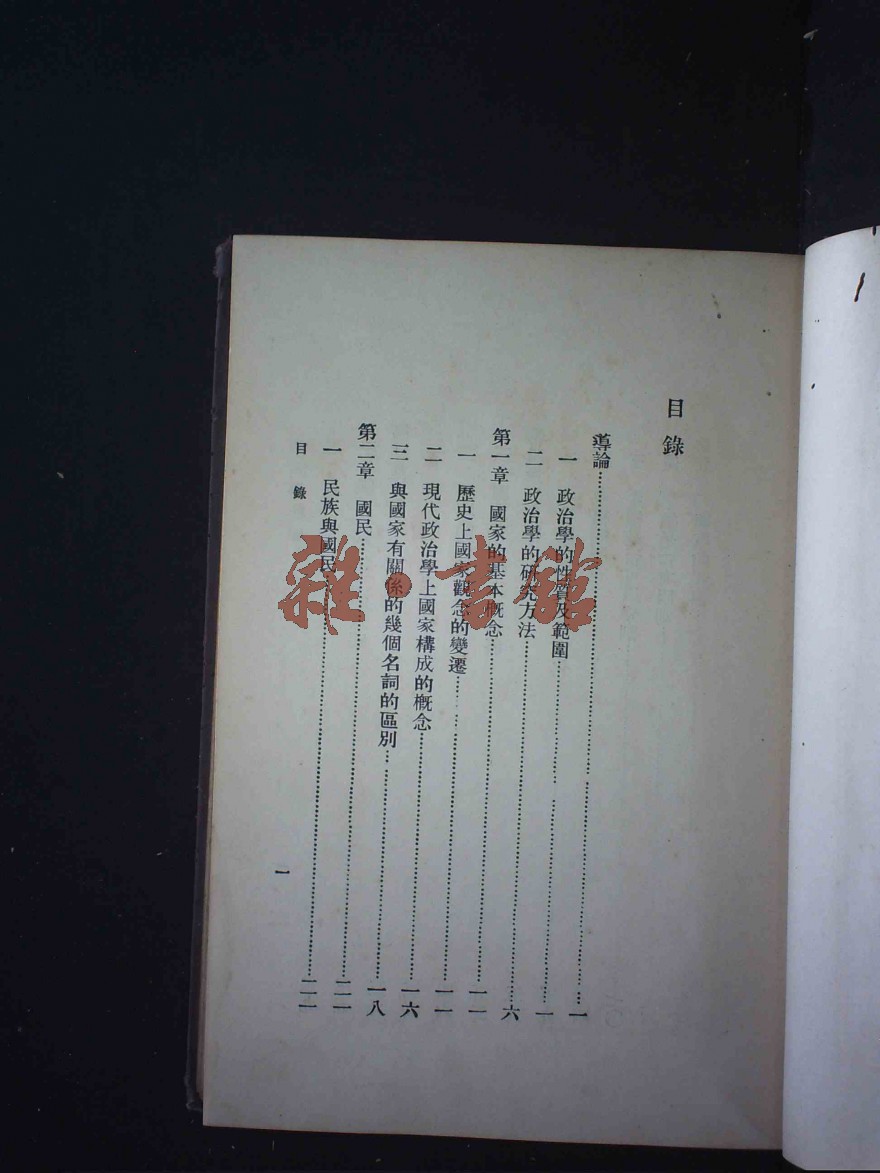 目錄
導論……一
一 政治學的性質及範圍……一
二 政治學的研究方法……六
第一章 國家的基本概念……一一
一 歷史上國家觀念的變遷……一一
二 現代政治學上國家構成的概念……一六
三 與國家有關係的幾個名詞的區別……一八
第二章 國民……二一
一 民族與國民……二一
目錄
一
雜·書館